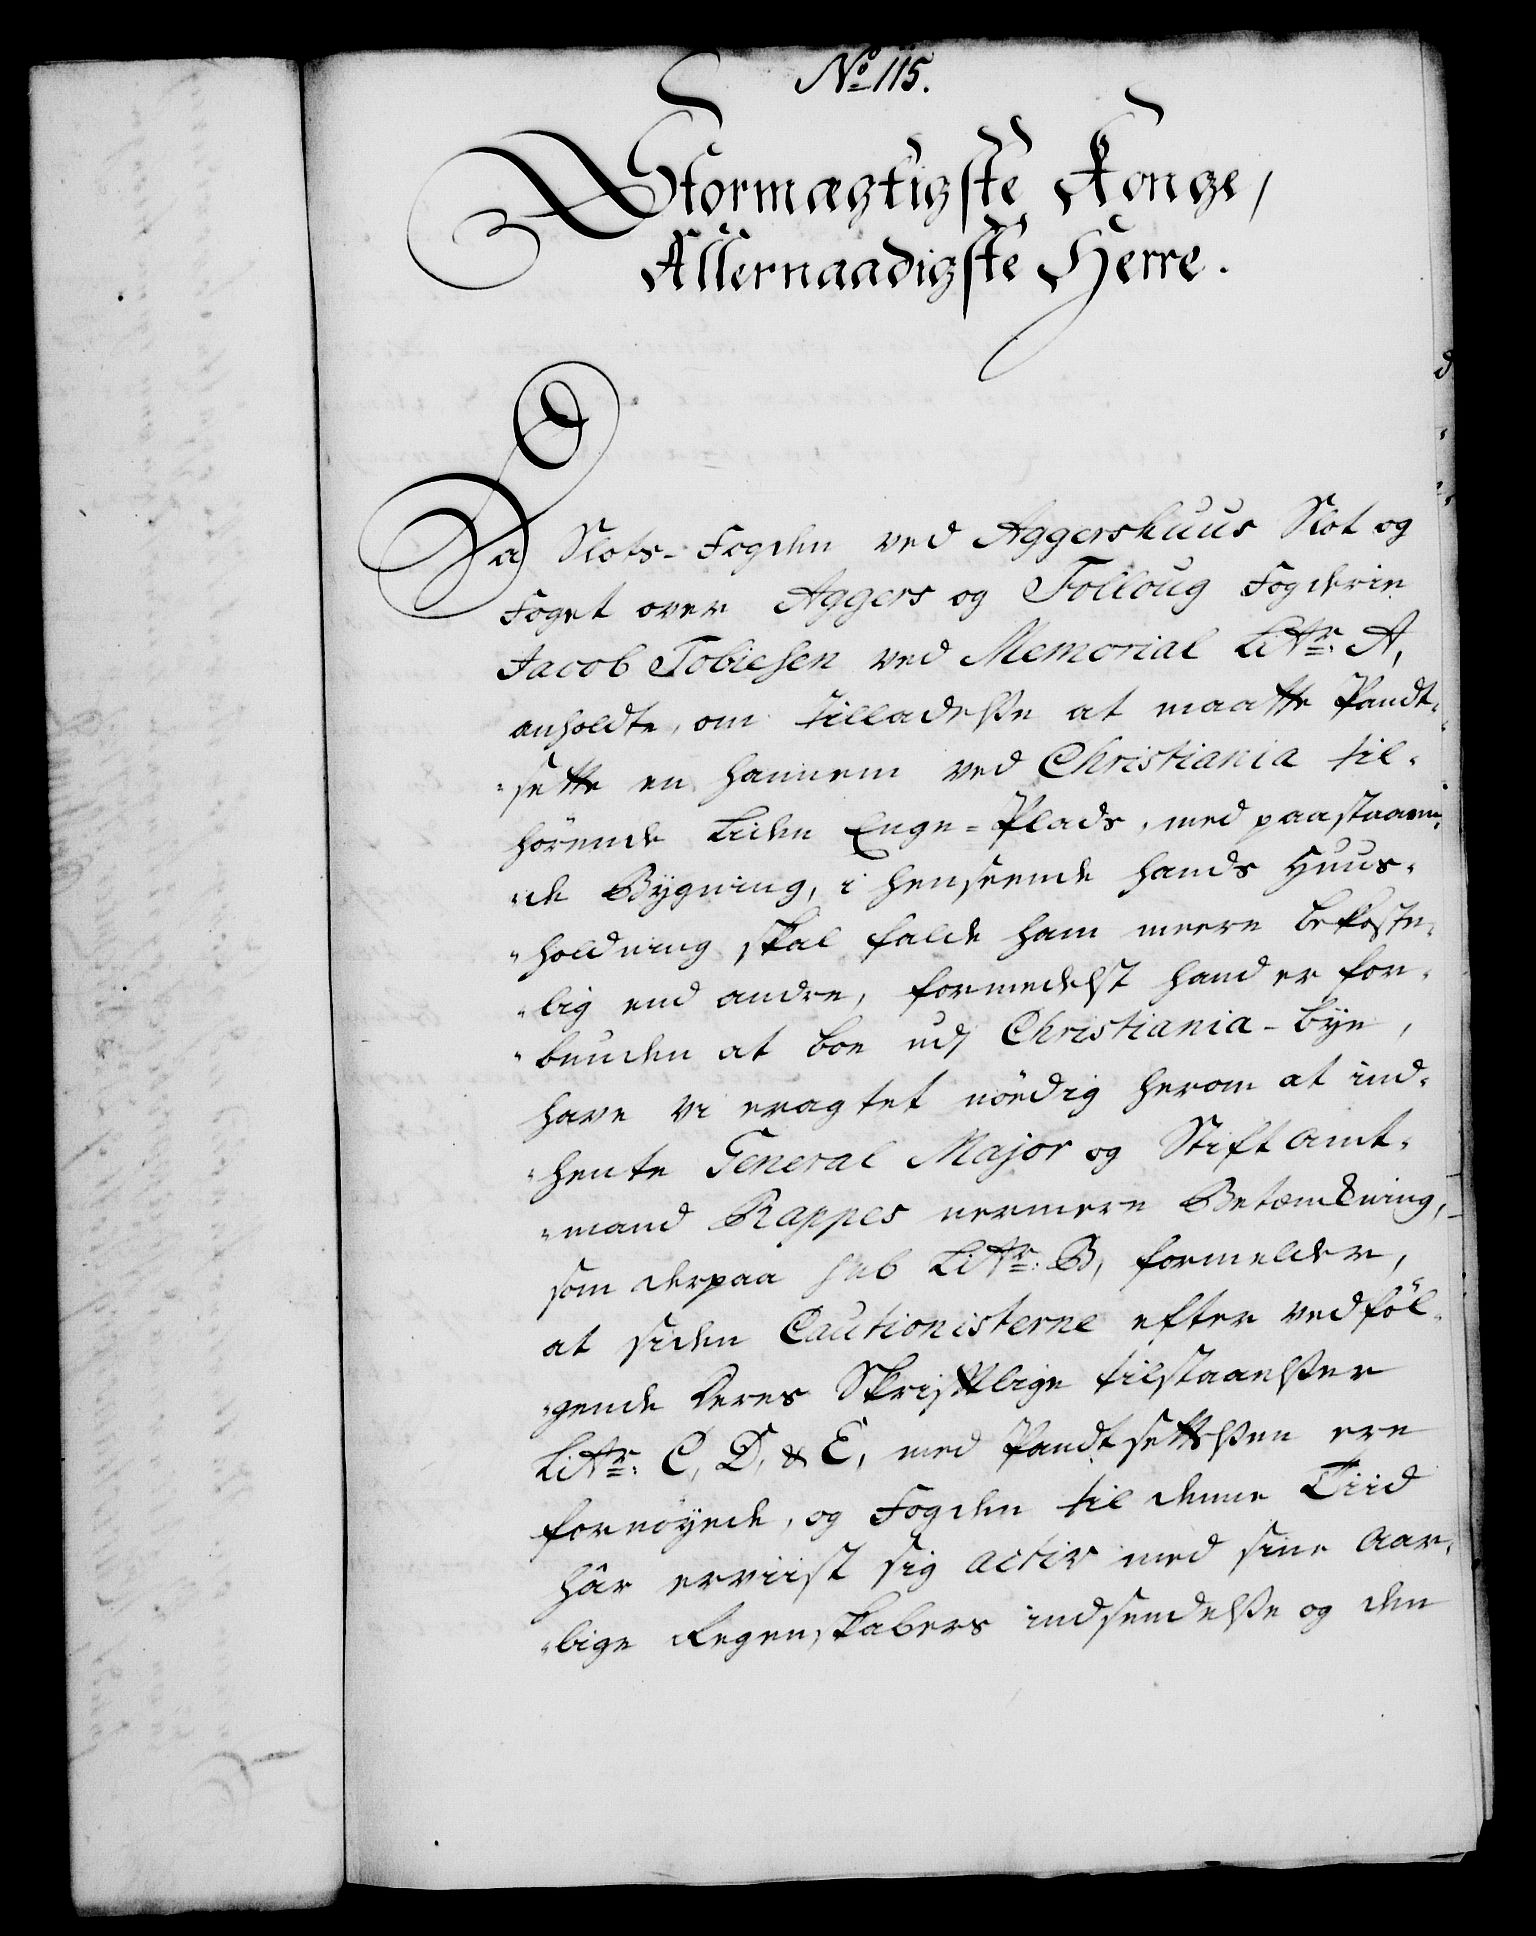 No 115.
Stormægtigste Konge,
Allernaadigste Herre.
Da Slots-Fogden ved Aggershuus Slot og
Foget over Aggers og Folloug Fogderie
Jacob Tobiesen ved Memorial Littr: A,
anholdte, om tilladelsse at maatte Pandt-
-sette en hannem ved Christiania til-
hörende Liden Enge-Plads, med paastaaen-
-de Bÿgning, i henseende hands Huus-
-holdning skal falde ham meere bekoste-
-lig end andre, formedelst hand er for-
-buuden at boe udj Christiania-bÿe,
have vi eragtet nöedig herom at ind-
-hente General Major og Stiftamt-
-mand Rappes nermere Betænkning,
som derpaa sub Littr: B, formelder,
at siden Cautionisterne efter vedföl-
-gende deres Skriftlige tilstaaelsser
Littr: C, D, & E, med Pandtsettelssen ere
fornöyede, og Fogden til denne Tiid
har erviist sig activ med sine Aar-
-lige Regenskabers indsendelsse og den